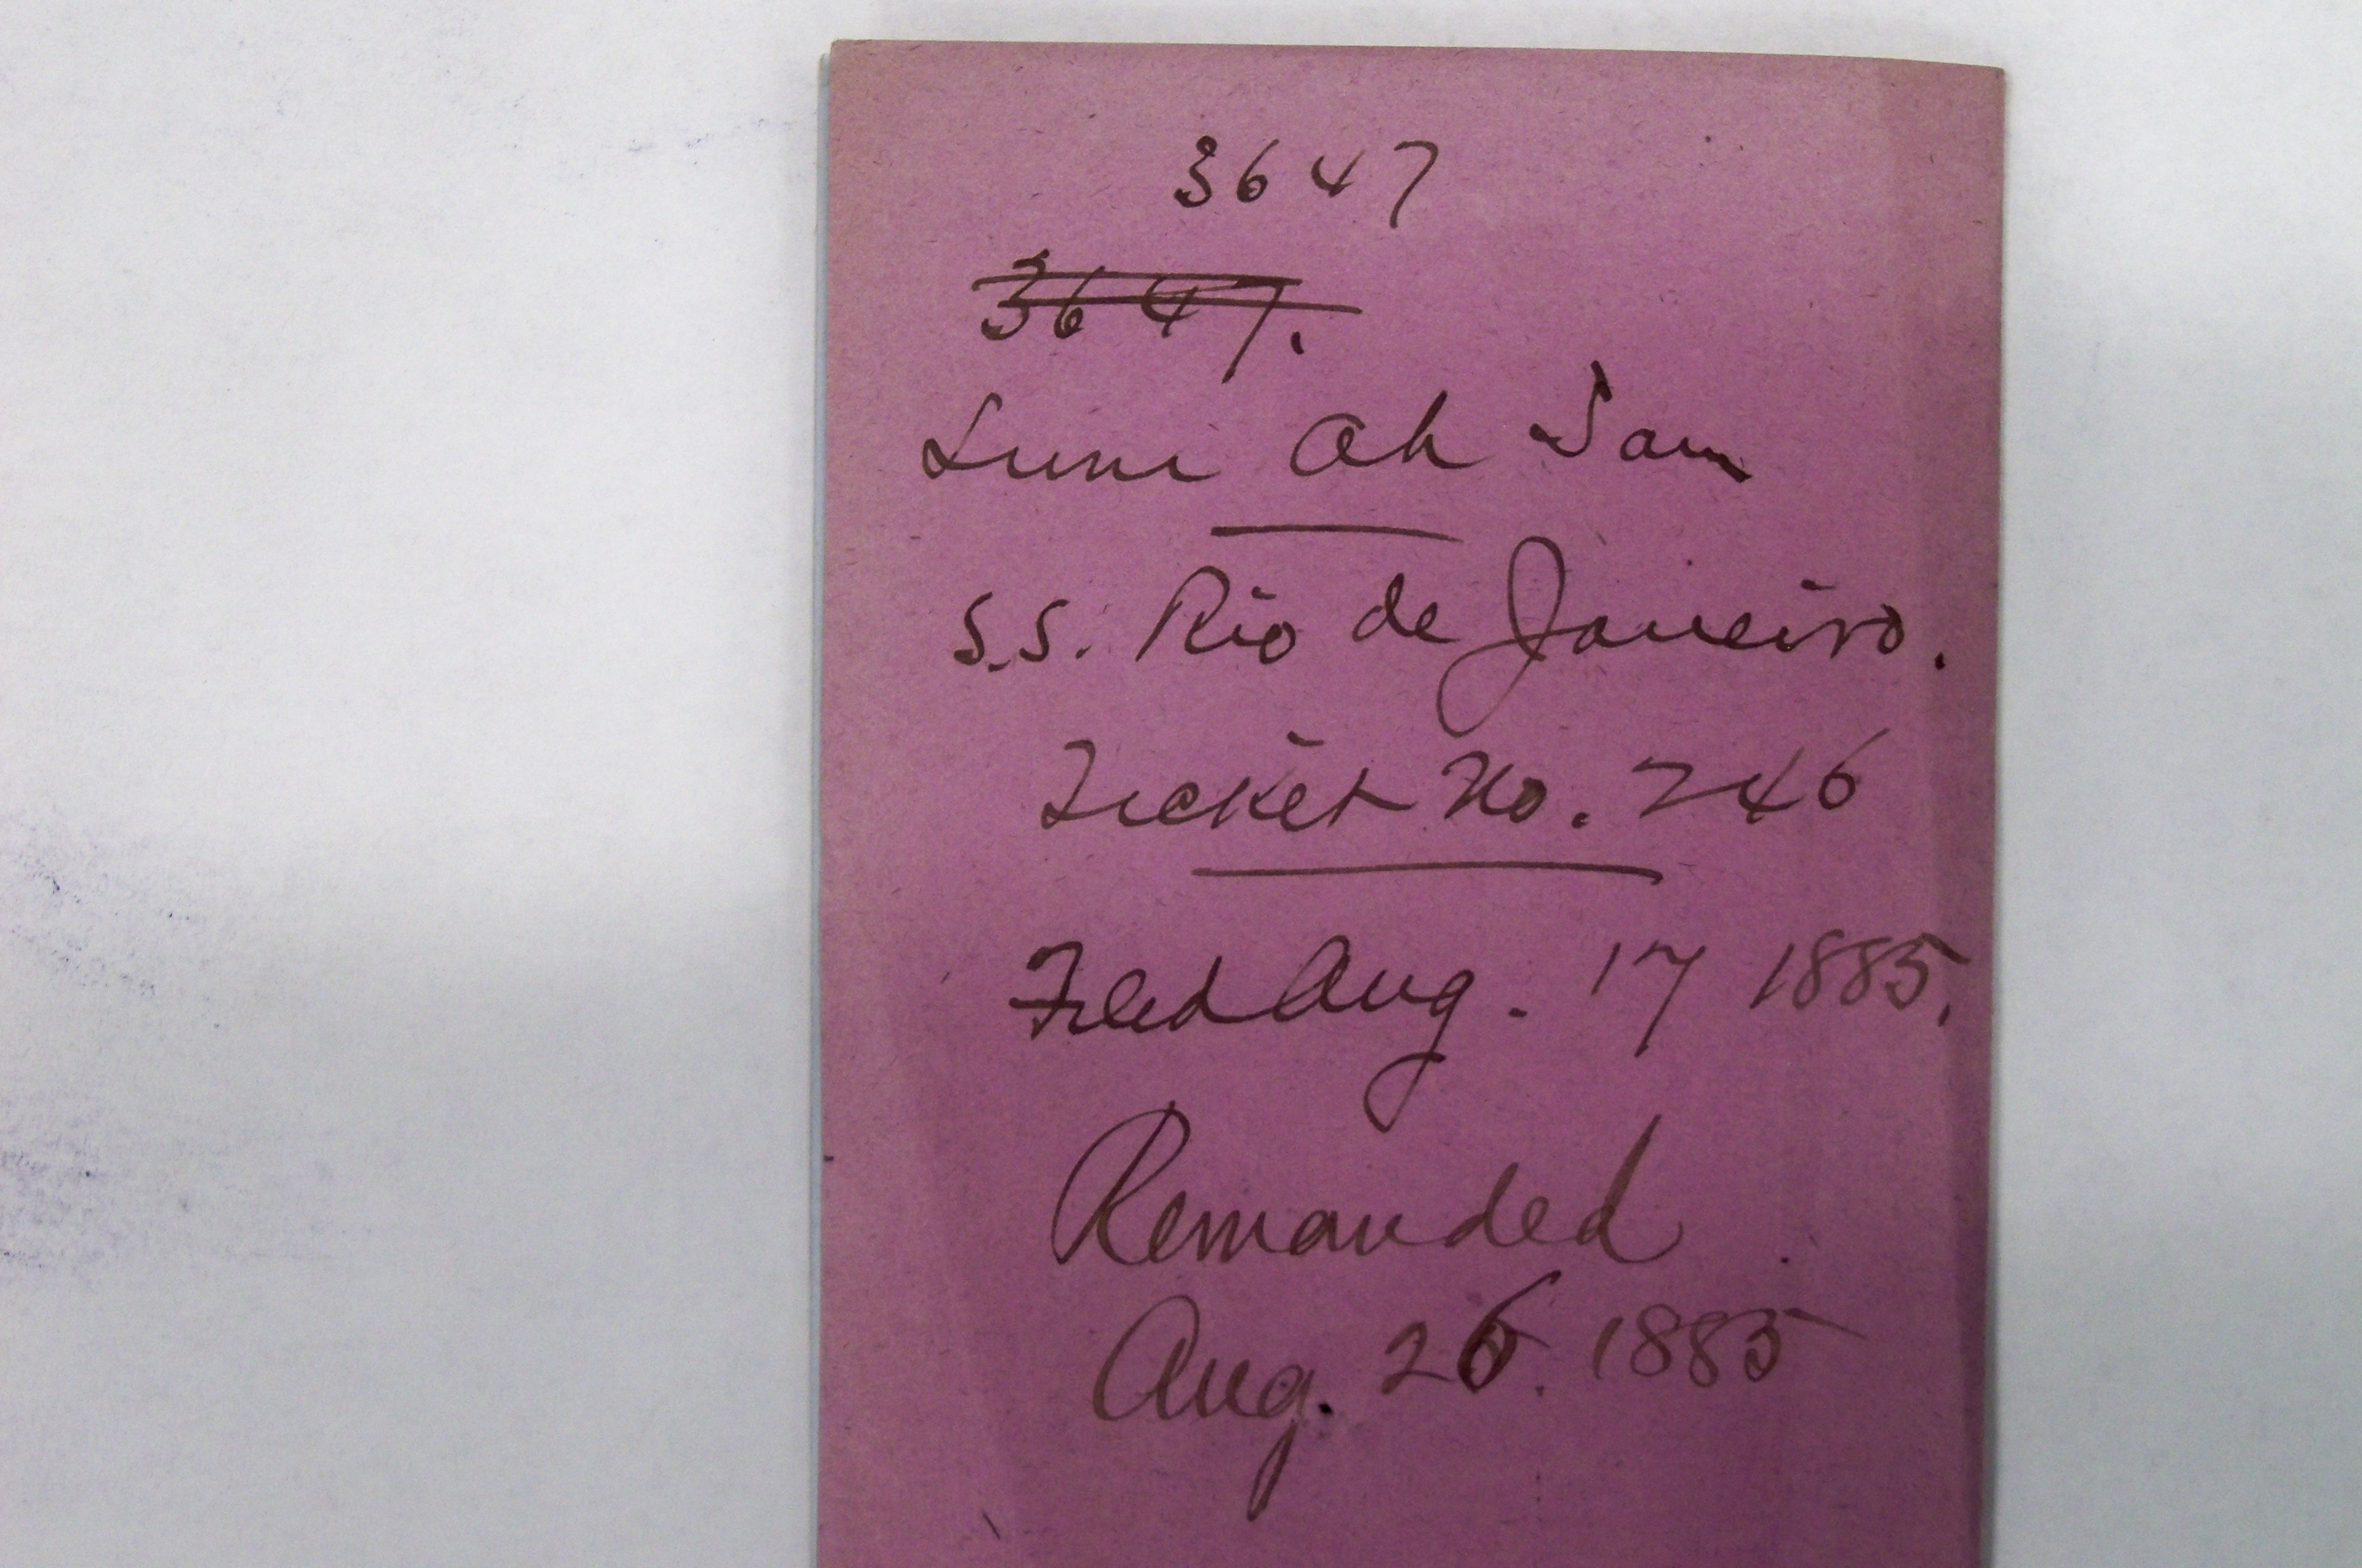 3647
3647.
Lum Ah Sam
S.S. Rio de Janeiro.
Ticket No. 746
Filed Aug. 17 1885.
Remanded
Aug. 26. 1885